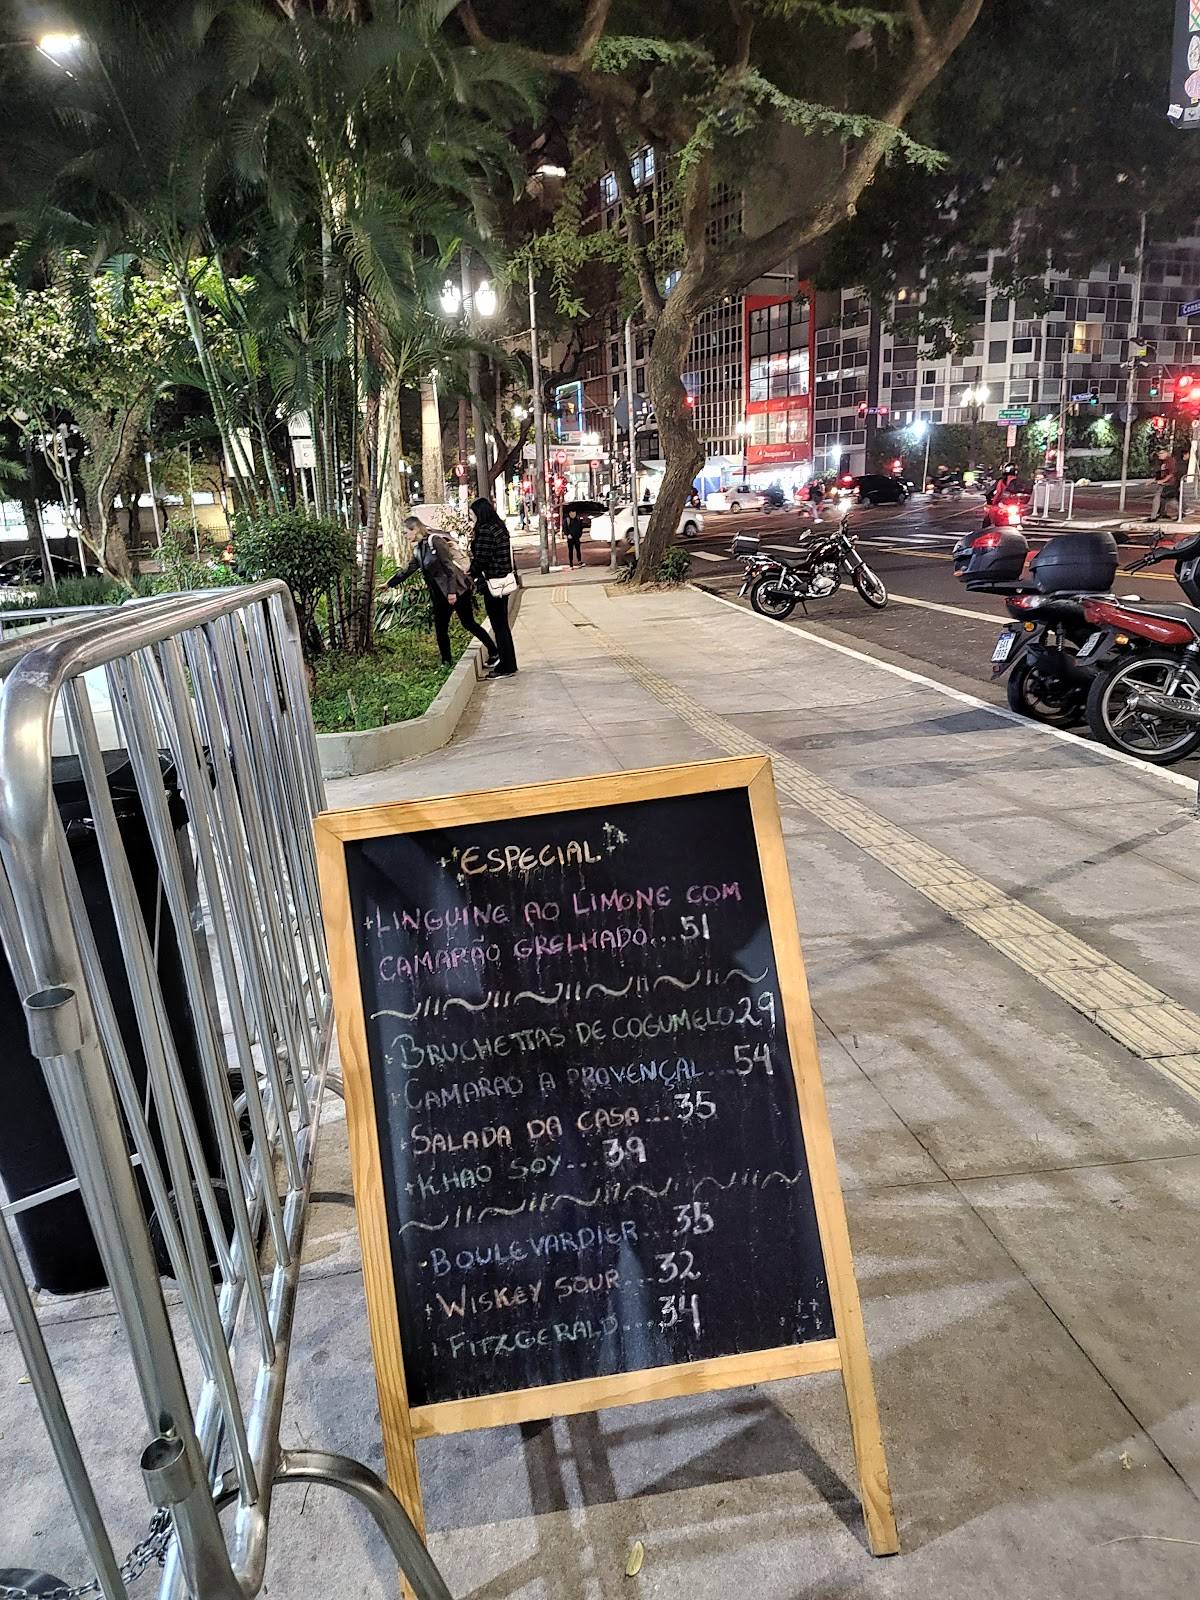 ESPECIAL
LINGUINE AO LIMONE COM
CAMARÃO GRELHADO...51
BRUCHETTAS DE COGUMELO 29
CAMARAO A PROVENÇAL...54
SALADA DA CASA...35
KHAO SOY...39
BOULEVARDIER...35
WISKEY SOUR...32
FITZGERALD...34